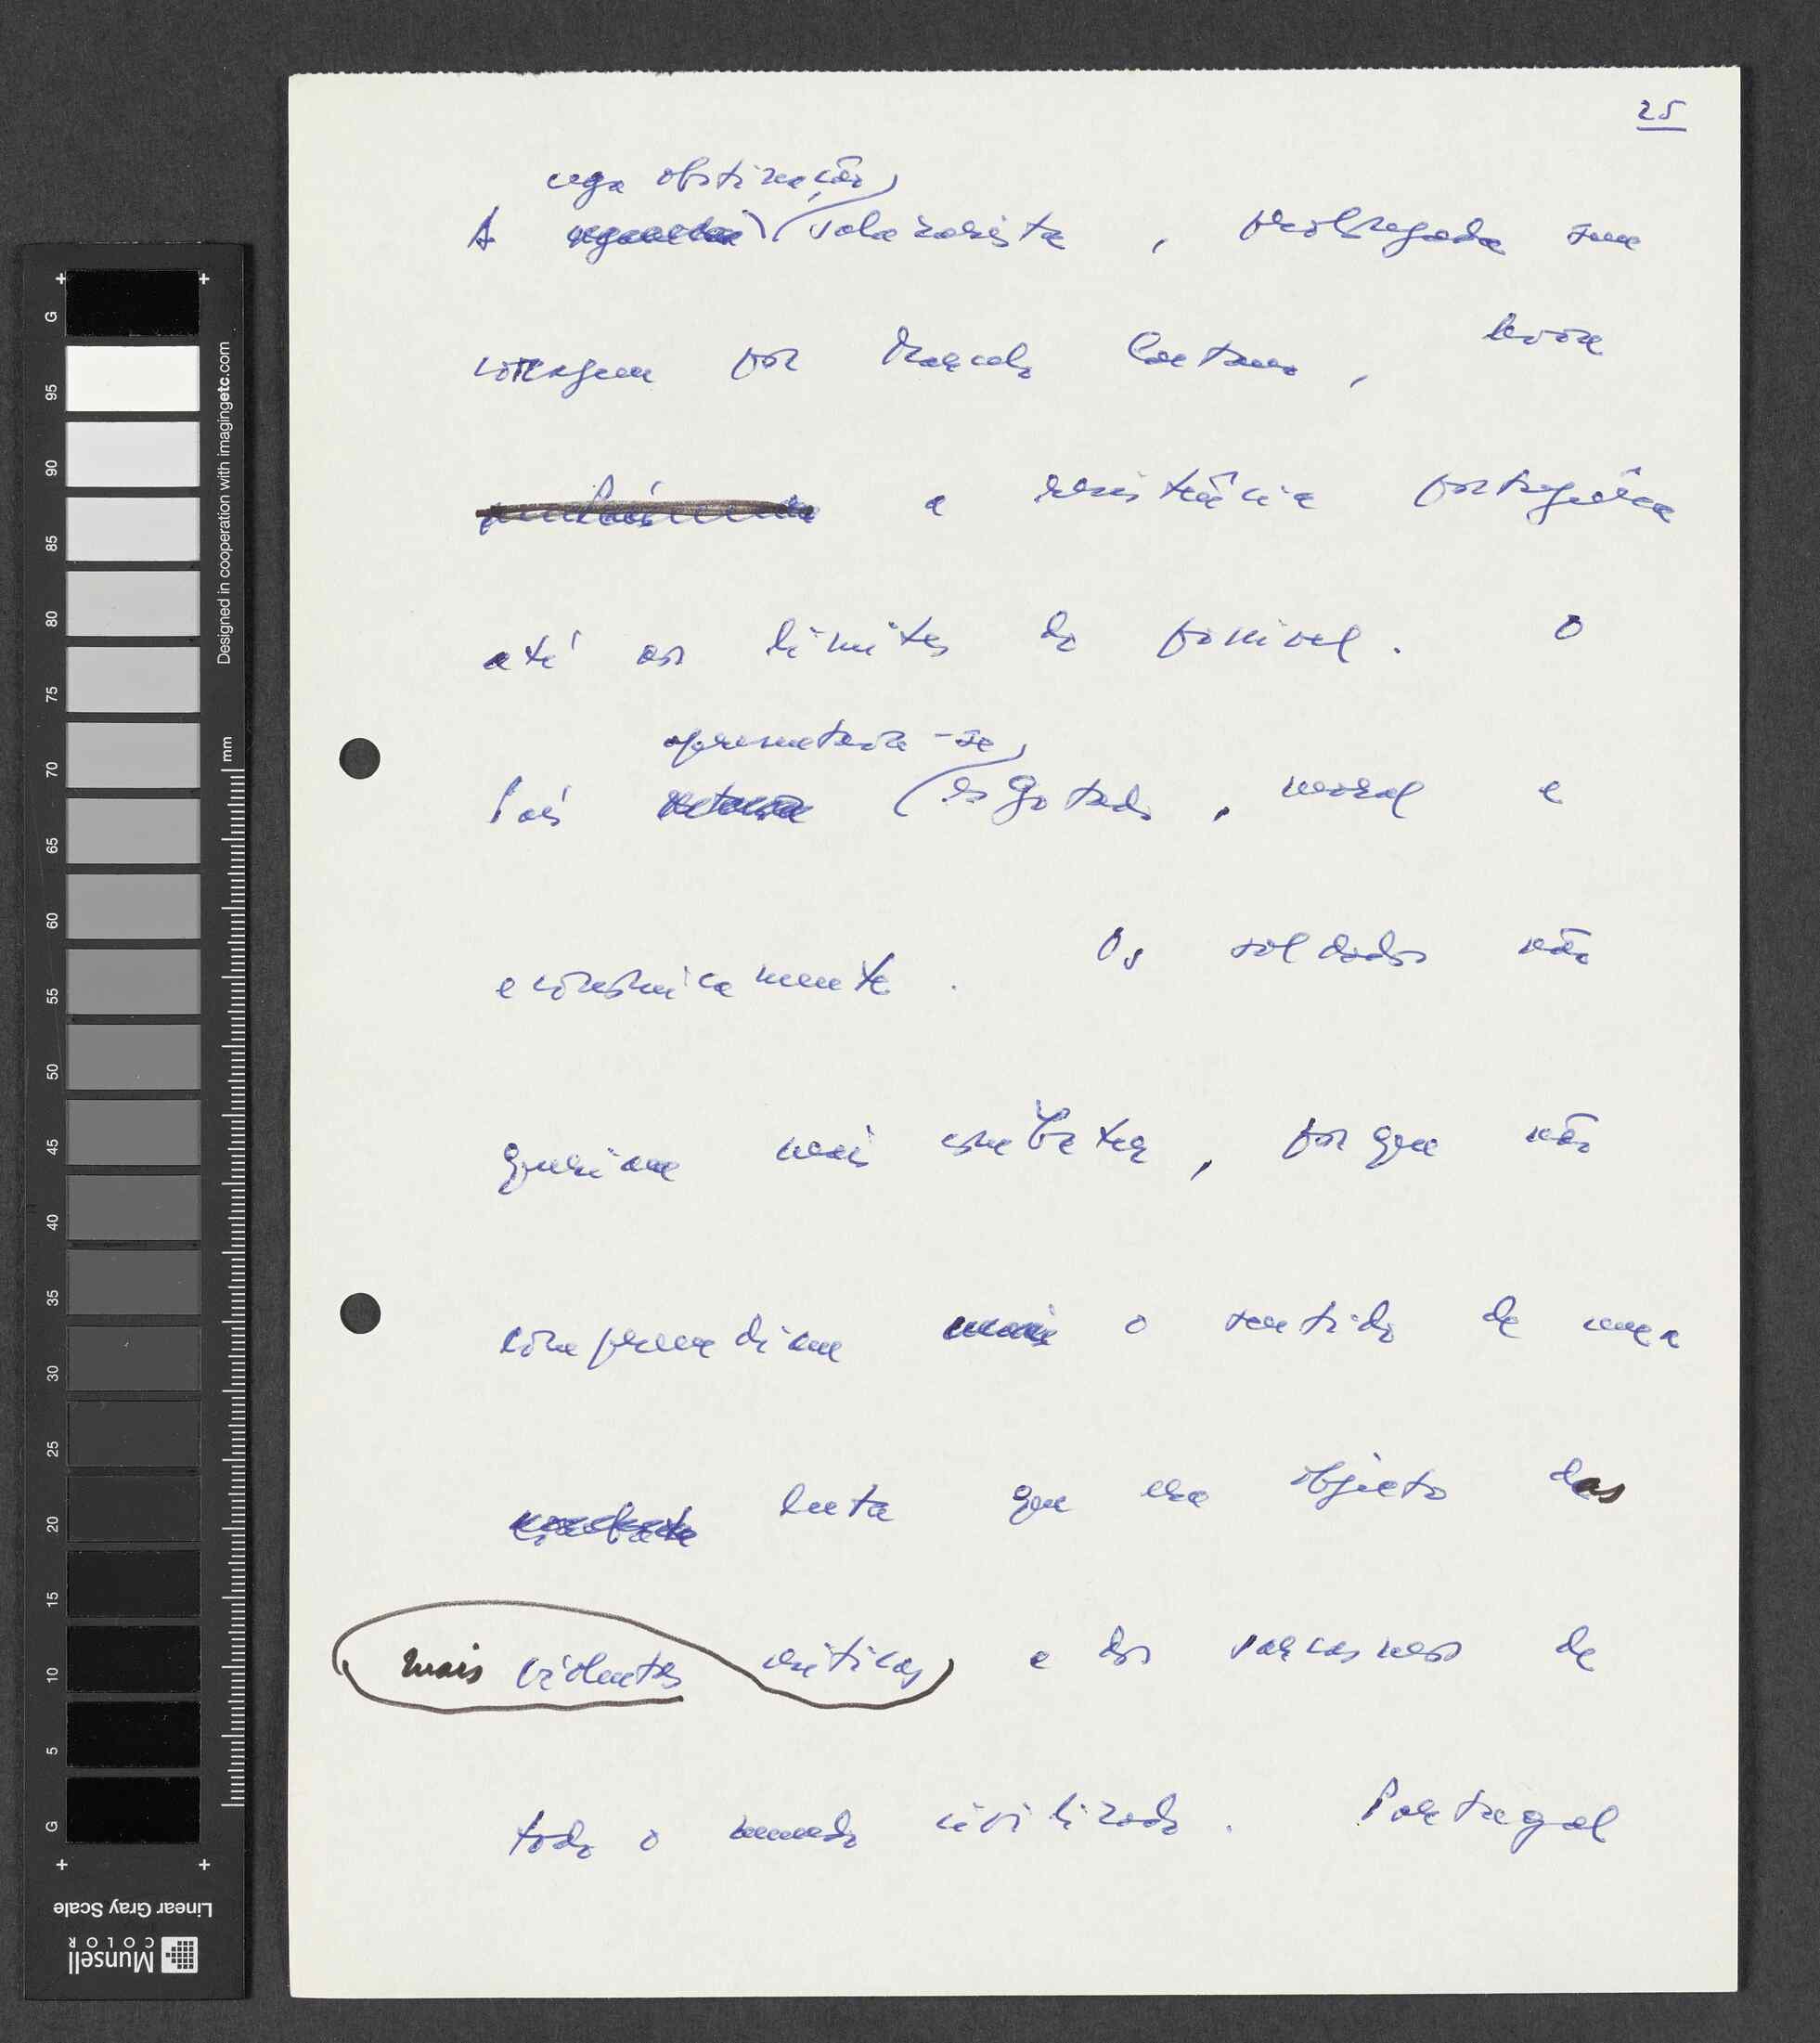 25
cega obstinação
A salazarista, prolongada sem
coragem por Marcelo Caetano, levou
a resistência portuguêsa
até os limites do possível. O
apresentava-se
País esgotado, moral e
economicamente. Os soldados não
queriam mais combater, porque não
compreendiam mais o sentido de uma
combate luta que era objeto das
mais violentas críticas e dos sarcasmos de
todo o mundo civilizado. Portugal
G
95
90
85
80
75
70
65
60
55
50
45
40
35
30
25
20
15
10
5
G
Designed in cooperation with imagingetc.com
mm
Linear Gray Scale
Munsell
COLOR